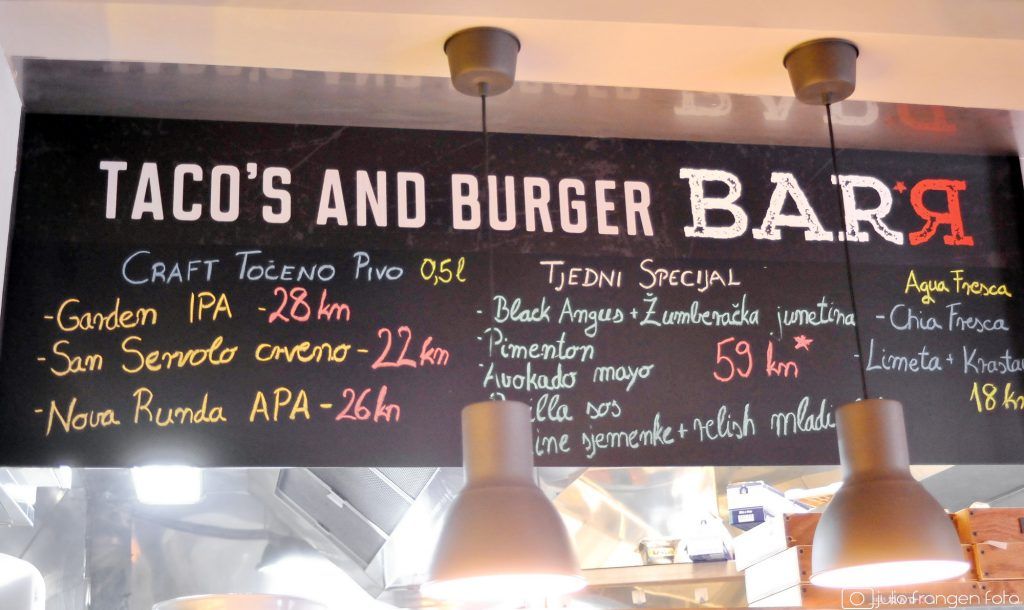 TACO'S AND BURGER BAR*R
CRAFT TOČENO PIVO 0,5l
-Garden IPA -28 kn
-San Servolo crveno -22 kn
-Nova Runda APA -26 kn
TJEDNI SPECIJAL
-Black Angus + Žumberačka junetina
-Pimenton 59 kn*
-Avokado mayo
sos
sjemenke + relish
Agua Fresca
-Chia Fresca
-Limeta +
18 kn